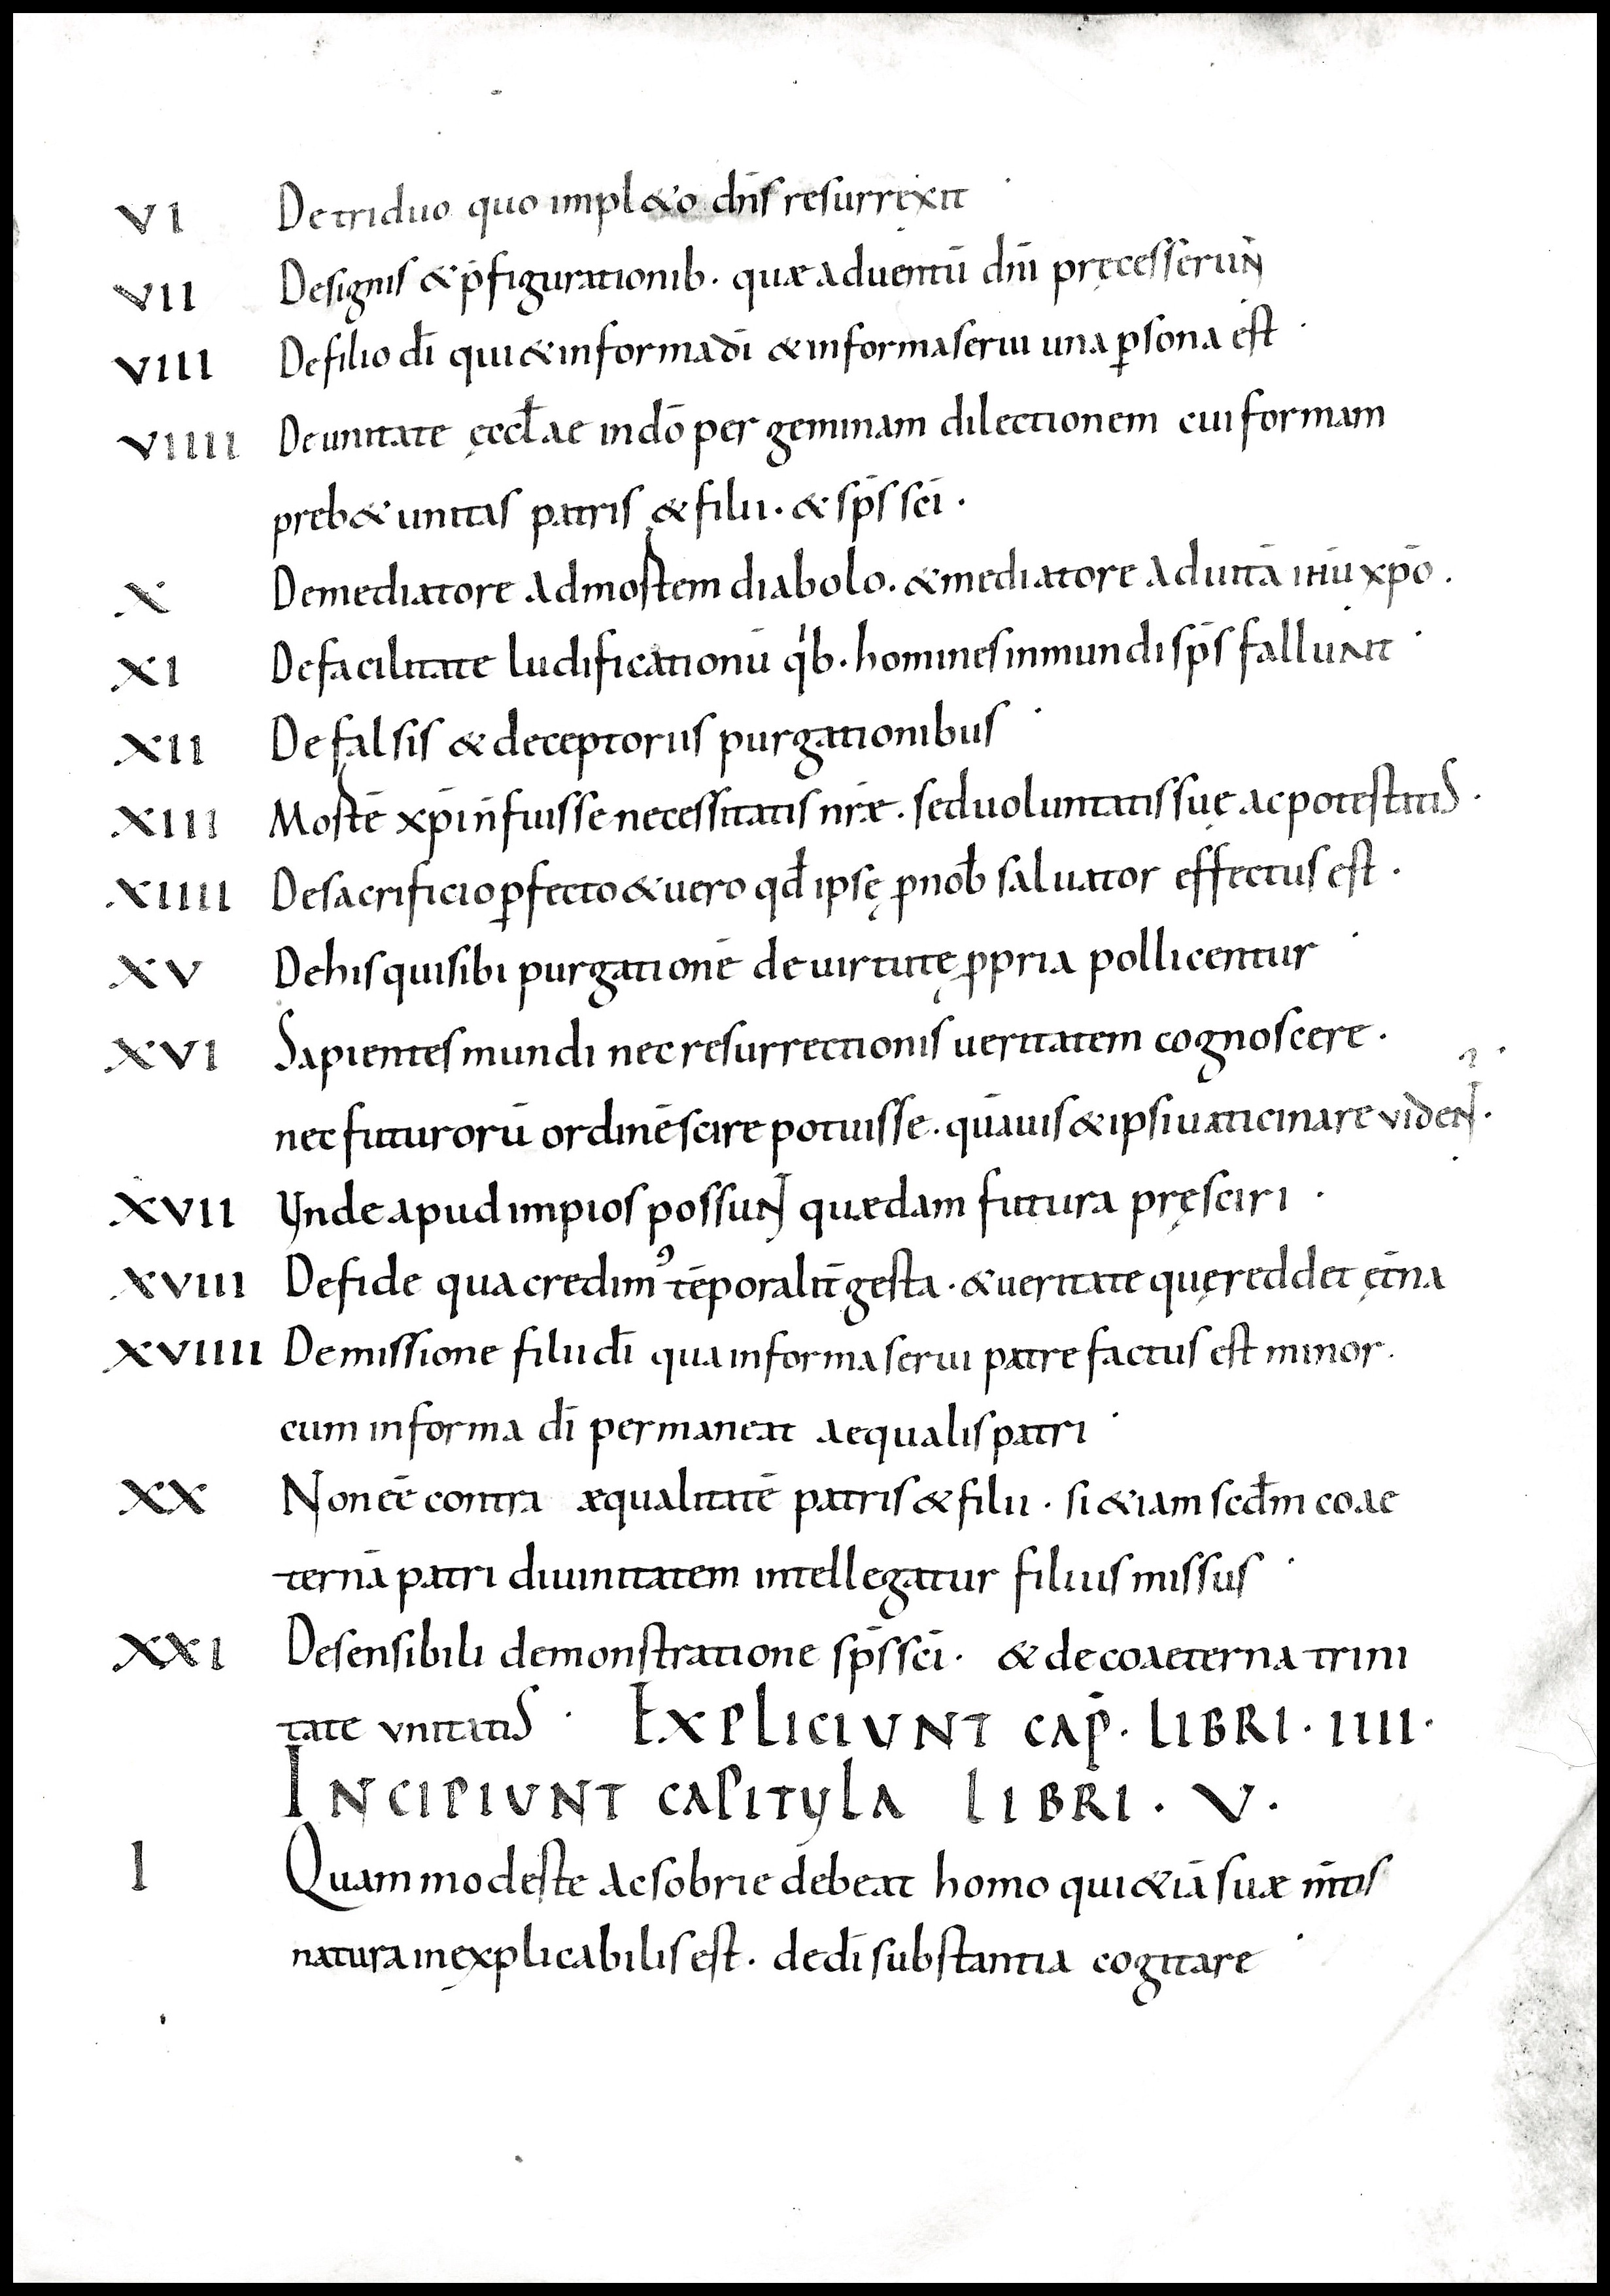 VI De triduo quo impl&o dn̄s resurrexit
VII De signis & p̄figurationib· quæ aduentū dn̄i pręcesserunt
VIII De filio dī qui & in forma dī & in forma serui una ꝑsona est·
VIIII De unitate ęccƚae in dō per geminam dilectionem cui formam
preb& unitas patris & filii· & sp̄s sc̄i·
X De mediatore ad mortem diabolo· & mediatore ad uitā ih̄u xp̄o·
XI De facilitate ludificationū qͥb· homines inmundi sp̄s fallunt·
XII De falsis & deceptoriis purgationibus·
XIII Mortē xp̄i n̄ fuisse necessitatis nr̄æ· sed uoluntatis suę ac potestatis·
XIIII De sacrificio ꝑfecto & uero qđ ipsę ꝓ nob̄ saluator effectus est·
XV De his qui sibi purgationē de uirtutę ꝓpria pollicentur·
XVI Sapientes mundi nec resurrectionis ueritatem cognoscere·
nec futurorū ordinē scire potuisse· quāuis & ipsi uaticinare vident̉·
XVII Vnde apud impios possunt quædam futura pręsciri·
XVIII De fide qua credimꝰ tēporalit̄ gesta· & ueritate quę reddet ęt̄na
XVIIII De missione filii dī qua in forma serui patre factus est minor·
cum in forma dī permaneat aequalis patri·
XX Non eē contra æqualitatē patris & filii· si &iam scđm coae
ternā patri diuinitatem intellegatur filius missus·
XXI De sensibili demonstratione sp̄s sc̄i· & de coaeterna trini
tate vnitatis· EXPLICIUNT CAP̄· LIBRI· IIII·
INCIPIUNT CAPITULA LIBRI· V·
I Quam modeste ac sobrie debeat homo qui &iā suæ m̄tis
natura inexplicabilis est· de dī substantia cogitare·